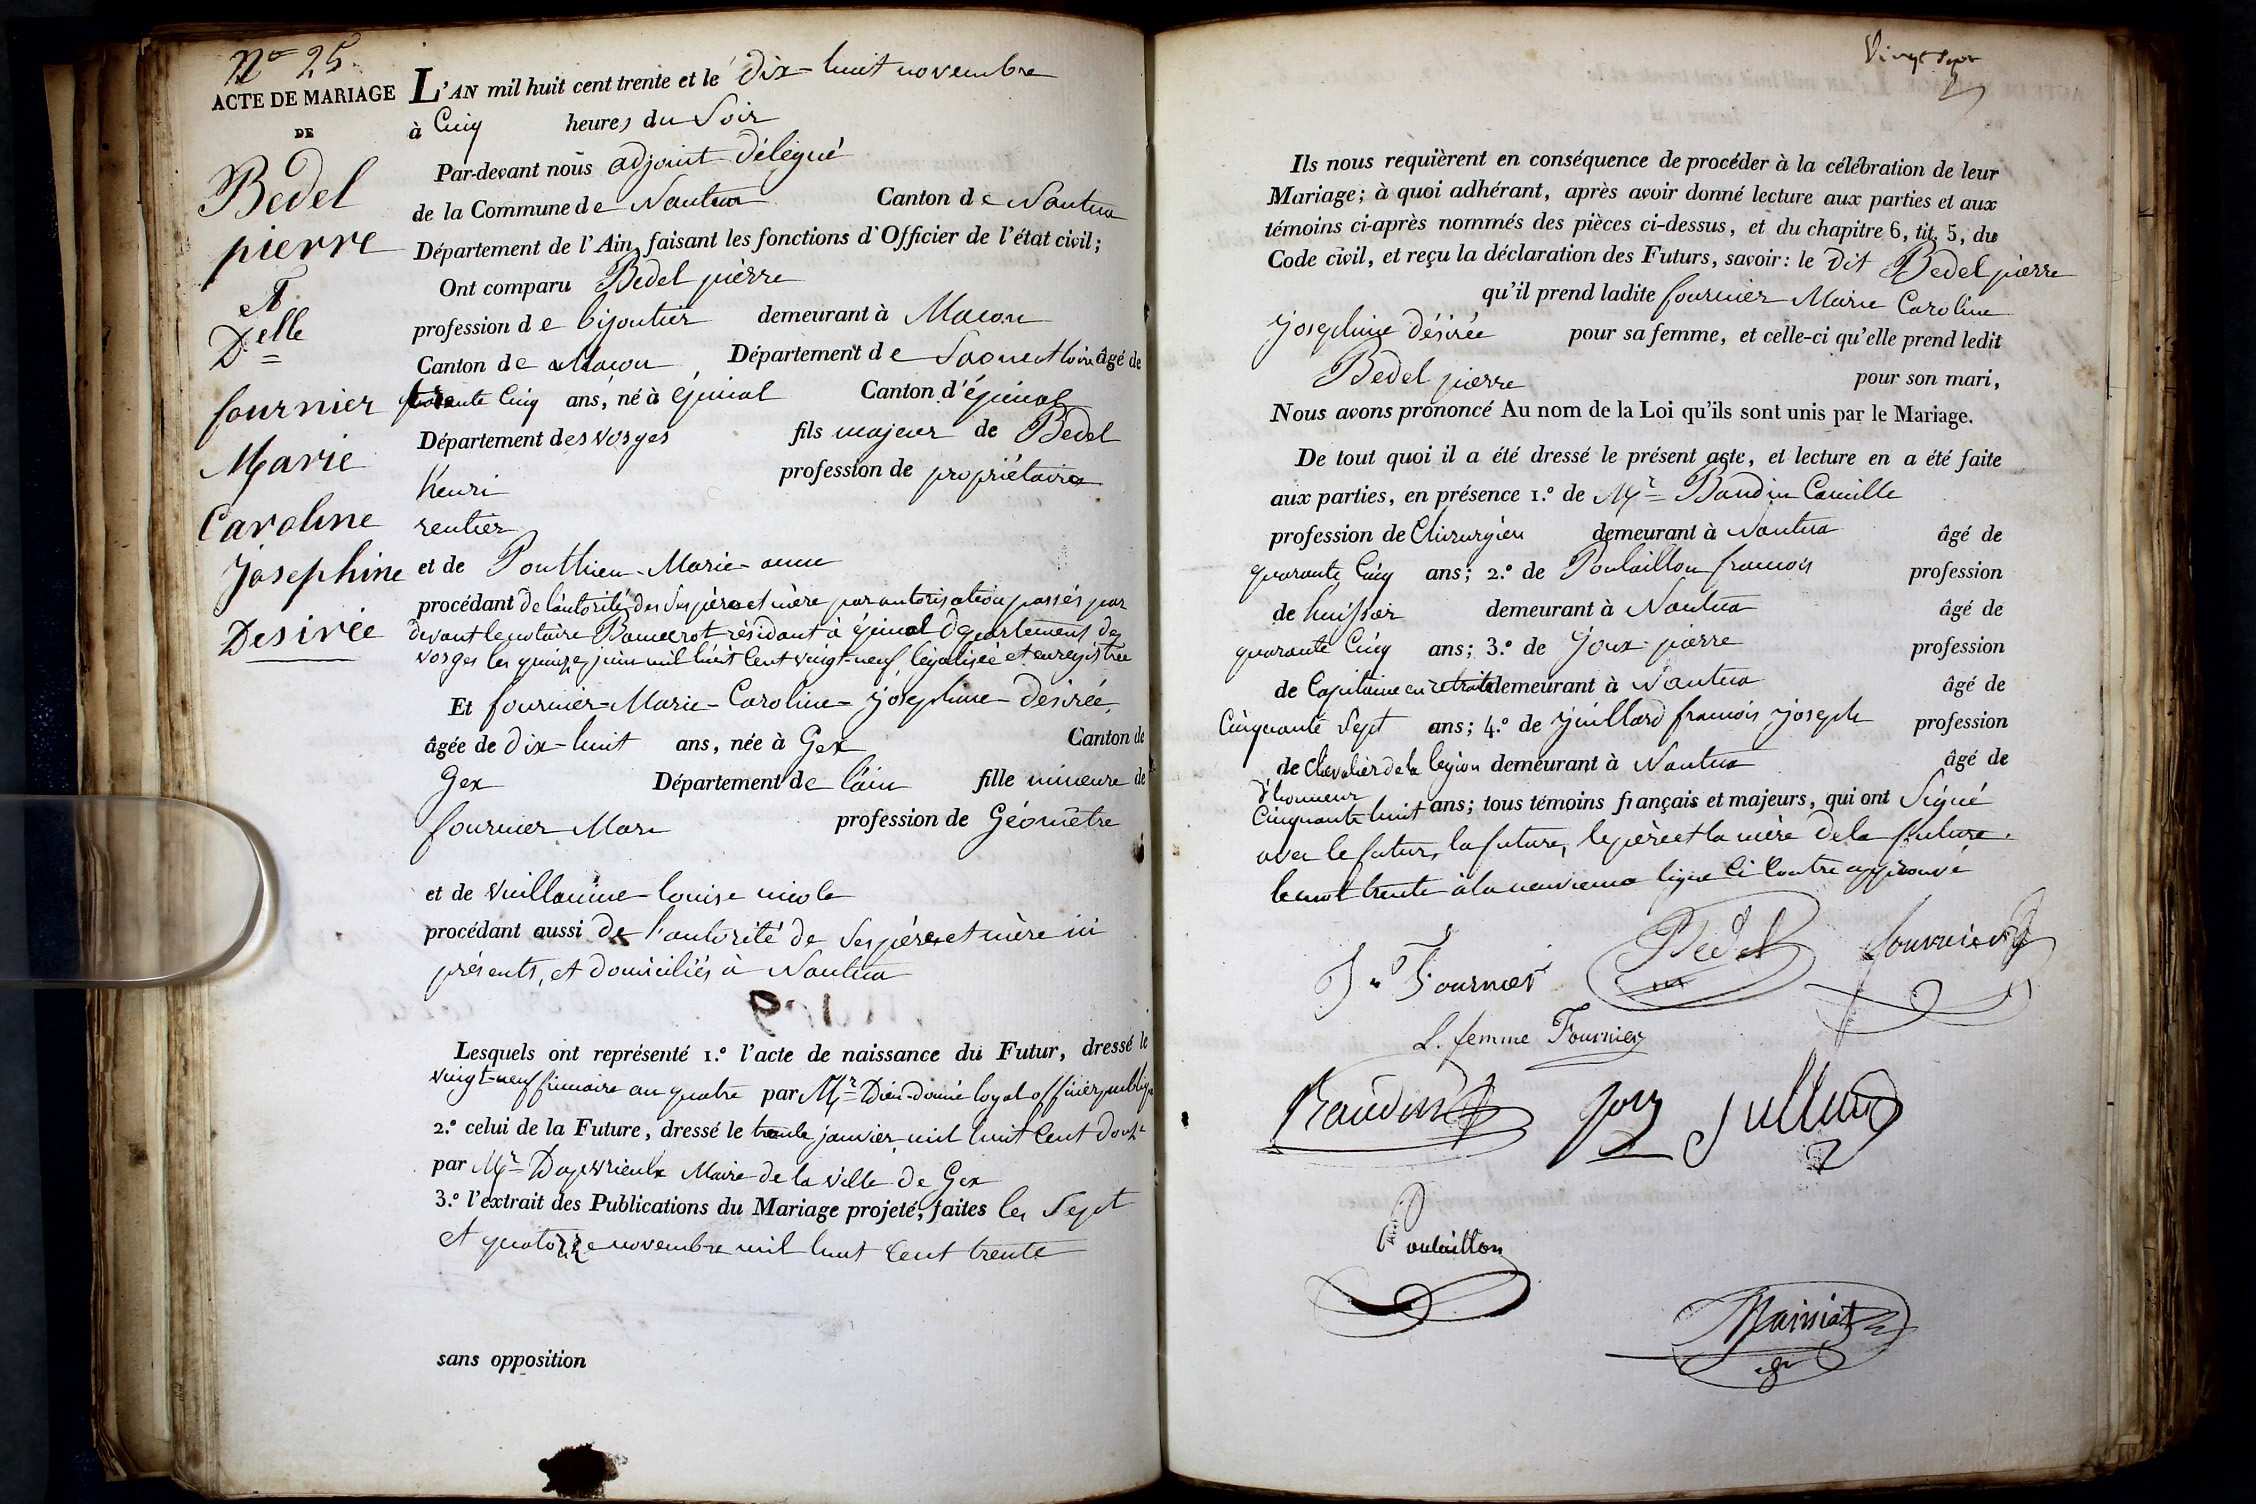 N° 25.
ACTE DE MARIAGE
DE
Bedel
pierre
Et
D.elle
fournier
Marie
Caroline
Josephine
Desirée
L'AN mil huit cent trente et le dix-huit novembre
à Cinq heures du Soir
Par-devant nous adjoint délégué
de la Commune de Nantua Canton de Nantua
Département de l'Ain, faisant les fonctions d'Officier de l'état civil;
Ont comparu Bedel pierre
profession de bijoutier demeurant à Macon
Canton de Macon Département de Saone et loire âgé de
trente Cinq ans, né à épinal Canton d'épinal
Département des vosges fils majeur de Bedel
henri profession de propriétaire
rentier
et de Ponthieu Marie-anne
procédant de l'autorité des Ses père et mère par autorisation passés par
devant le notaire résidant à épinal département des
vosges les quinze juin mil huit Cent vingt-neuf légalisée et enregistrée
Et fournier-Marie-Caroline-joséphine-désirée,
âgée de dix-huit ans, née à Gex Canton de
Gex Département de l'ain fille mineure de
fournier Marc profession de Géomètre
et de Vuillaume louise nicole
procédant aussi de l'autorité de Ses père et mère ici
présents, et domiciliés à Nantua
Lesquels ont représenté 1.° l'acte de naissance du Futur, dressé le
vingt-neuf frimaire an quatre par Mr Dieu-donné loyal officier publique
2.° celui de la Future, dressé le trente janvier mil huit Cent douze
par Mr Maire de la ville de Gex
3.° l'extrait des Publications du Mariage projeté, faites les Sept
et quatorze novembre mil huit Cent trente
sans opposition
Vingt Sept
Ils nous requièrent en conséquence de procéder à la célébration de leur
Mariage; à quoi adhérant, après avoir donné lecture aux parties et aux
témoins ci-après nommés des pièces ci-dessus, et du chapitre 6, tit. 5, du
Code civil, et reçu la déclaration des Futurs, savoir: le dit Bedel pierre
qu'il prend ladite fournier Marie Caroline
joséphine désirée pour sa femme, et celle-ci qu'elle prend ledit
Bedel pierre pour son mari,
Nous avons prononcé Au nom de la Loi qu'ils sont unis par le Mariage.
De tout quoi il a été dressé le présent acte, et lecture en a été faite
aux parties, en présence 1.° de Mr Baudin Camille
profession de Chirurgien demeurant à Nantua âgé de
quarante Cinq ans; 2.° de Poulaillon francois profession
de huissier demeurant à Nantua âgé de
quarante Cinq ans; 3.° de Joux pierre profession
de Capitaine en retraite demeurant à Nantua âgé de
Cinquante Sept ans; 4.° de juillard francois joseph profession
de Chevalier de la légion demeurant à Nantua âgé de
d'honneur
Cinquante huit ans; tous témoins français et majeurs, qui ont Signé
avec le futur, la future, le père et la mère de la future.
le mot trente à la neuvieme ligne Ci Contre approuvé
Fournier Bedel fournier
L. femme Fournier
Baudin Joux Julliard
Poulaillon